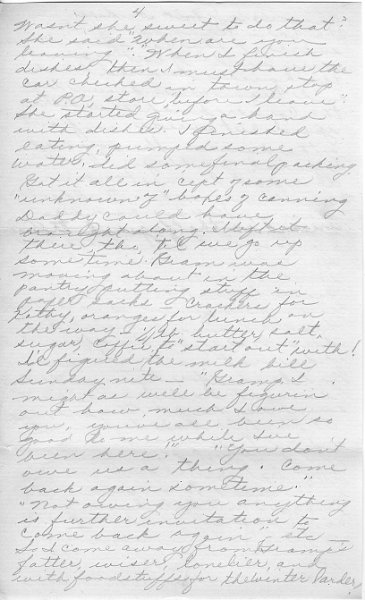 4
Wasn't she sweet to do that?
She said "When are you
leaving". "When I finish
dishes, then I must have the
car checked in town, stop
at P.O., store, before I leave"
She started giving a hand
with dishes. I finished
eating, pumped some
water, did some final packing
Got it all in, cept of some
"unknown of" boxes of canning
Daddy could have
along. I left it
there tho, 'til we go up
sometime. Gram was
moving about in the
pantry putting stuff in
paper sacks - crackers for
Kathy, oranges for lunch on
the way - butter, salt,
sugar, coffee to "start out" with!
I'd figured the milk bill
Sunday nite - "Gramp, I
might as well be figurin
out how much I owe
you, you've all been so
good to me while I've
been here." "You don't
owe us a thing. Come
back again sometime."
"Not owing you anything
is further invitation to
come back again, etc -
So I come away from Gramp's
fatter, wiser, lonelier, and
with foodstuffs for the winter larder,